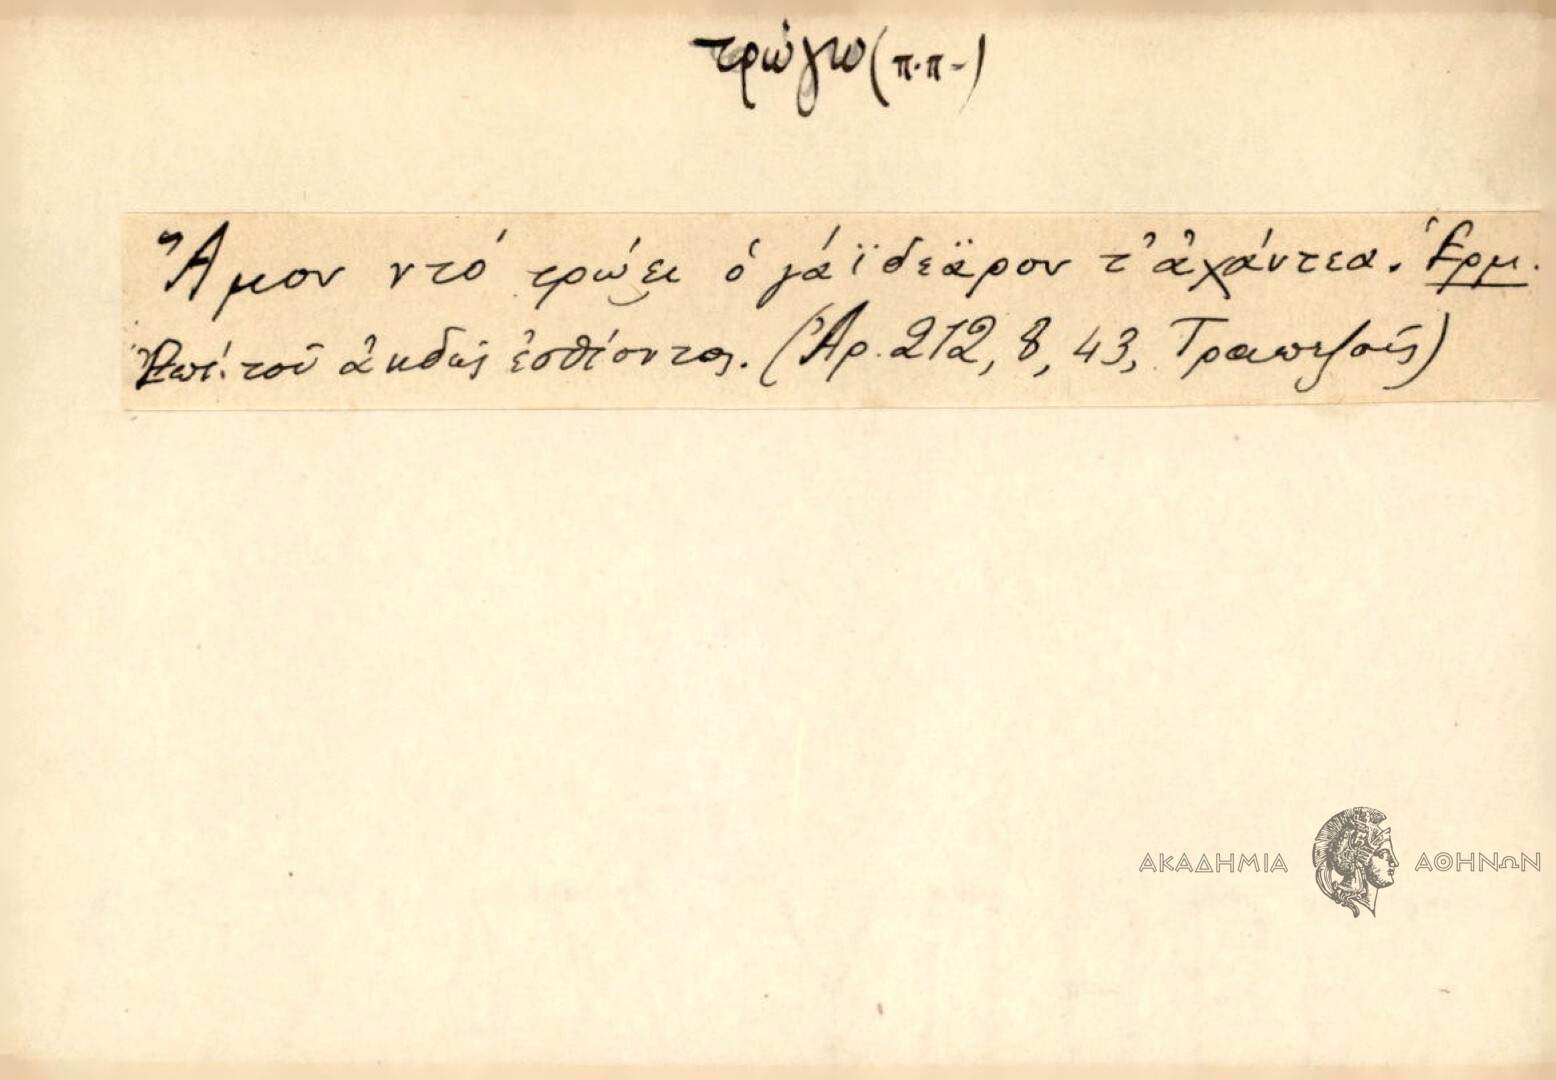 τρώγω (π.π-)
Ἄμον ντό τρώει ὁ γάϊδεäρον τ' ἀχάντεα. Ἑρμ.
Ἐπί τοῦ ἀηδῶς ἐσθίοντος. (Ἀρ. 212, 8, 43, Τραπεζοῦς)
ΑΚΑΔΗΜΙΑ ΑΘΗΝΩΝ